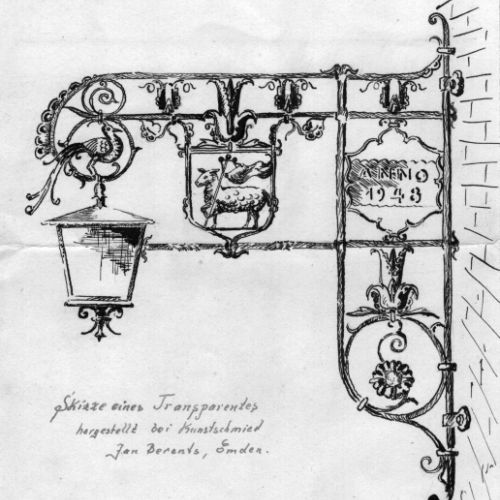 ANNO
1948
Skizze eines Transparentes
hergestellt bei Kunstschmied
Jan Berents, Emden.